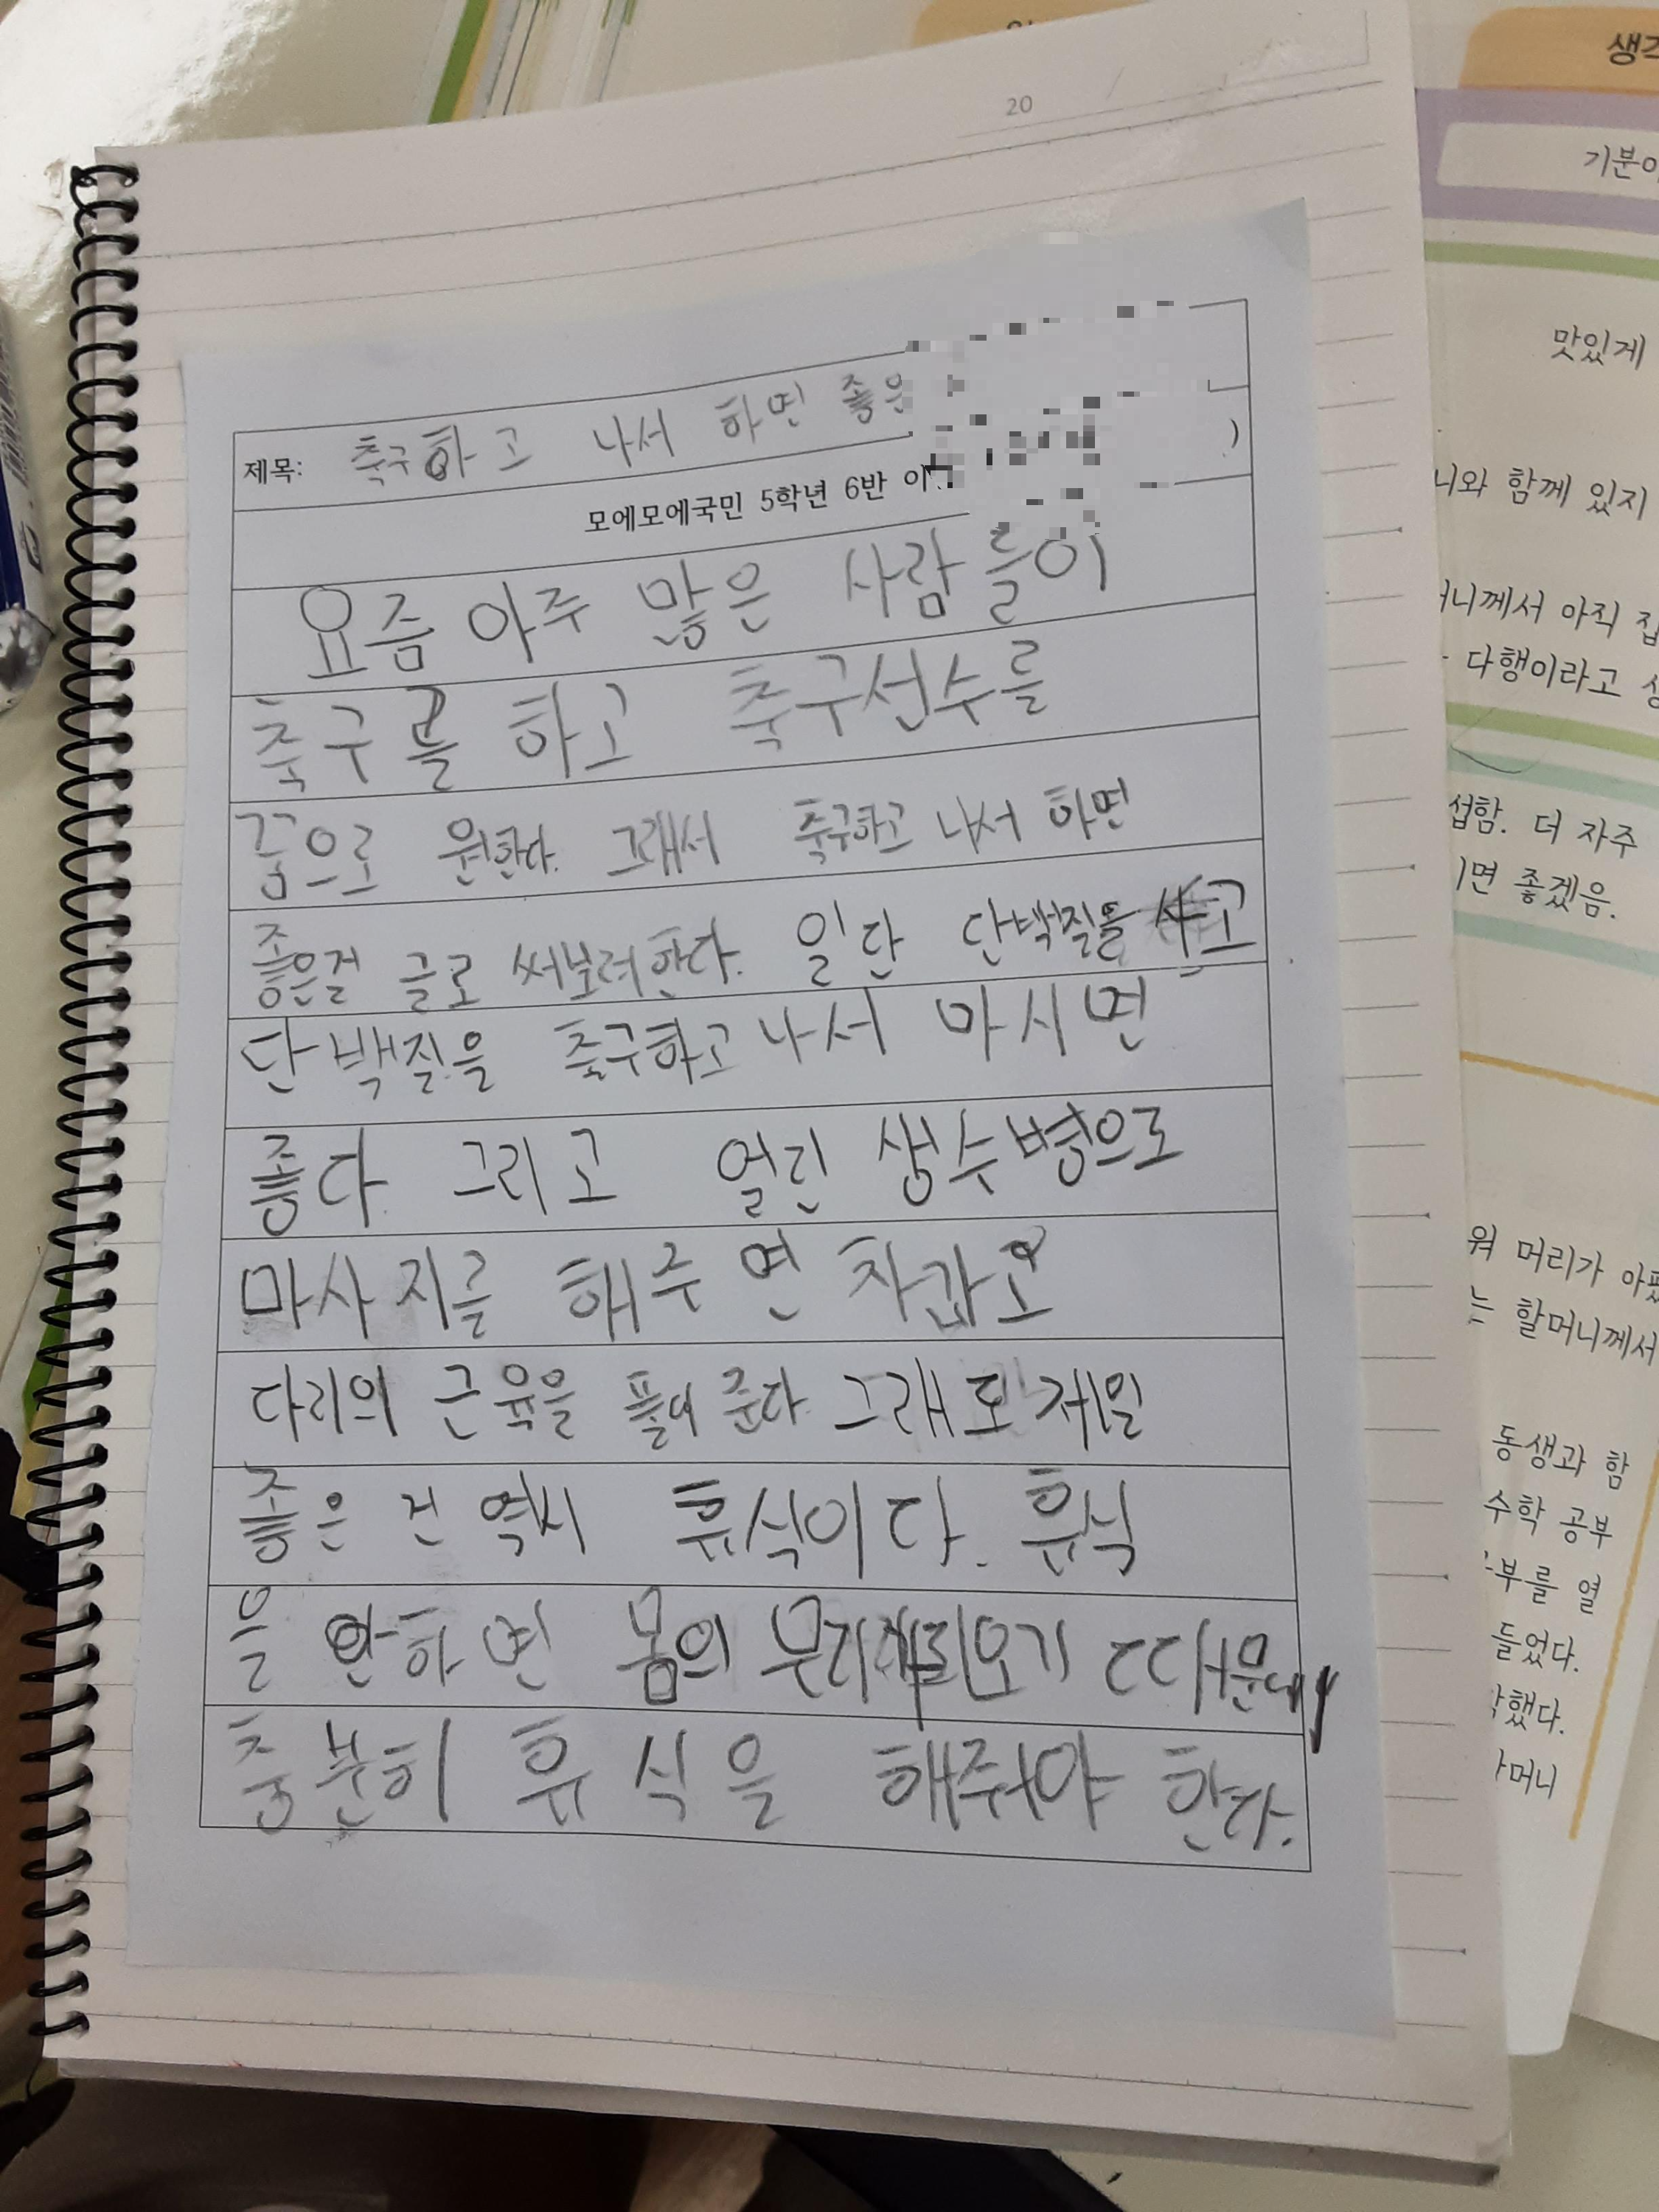 20
제목: 축구하고 나서 하면 좋은
모에모에국민 5학년 6반 이
)
요즘 아주 많은 사람들이
축구를 하고 축구선수를
꿈으로 원한다. 그래서 축구하고 나서 하면
좋은걸 글로 써보려한다. 일단 단백질을 사고
단백질을 축구하고 나서 마시면
좋다 그리고 얼린 생수병으로
마사지를 해주면 차갑고
다리의 근육을 풀어 준다 그래도 제일
좋은 건 역시 휴식이다. 휴식
을 안하면 몸의 무리가
충분히 휴식을 해줘야 한다.
생각
기분이
맛있게
니와 함께 있지
머니께서 아직 집
다행이라고
섭함. 더 자주
면 좋겠음.
워 머리가
는 할머니께서
동생과 함
수학 공부
부를 열
들었다.
했다.
머니